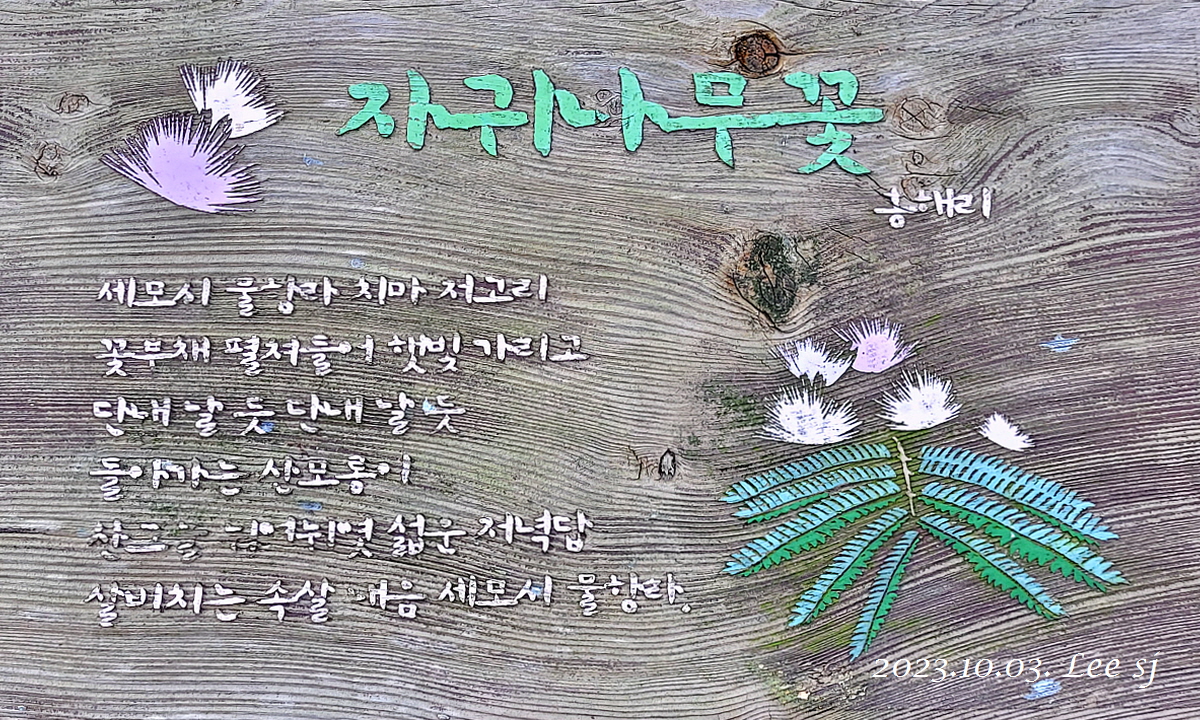 자귀나무꽃
홍해리
세모시 물항라 치마 저고리
꽃부채 펼쳐들어 햇빛 가리고
단내 날 듯 단내 날 듯
돌아가는 산모롱이
산그늘 섧운 저녁답
살비치는 속살 내음 세모시 물항라.
2023.10.03. Lee sj